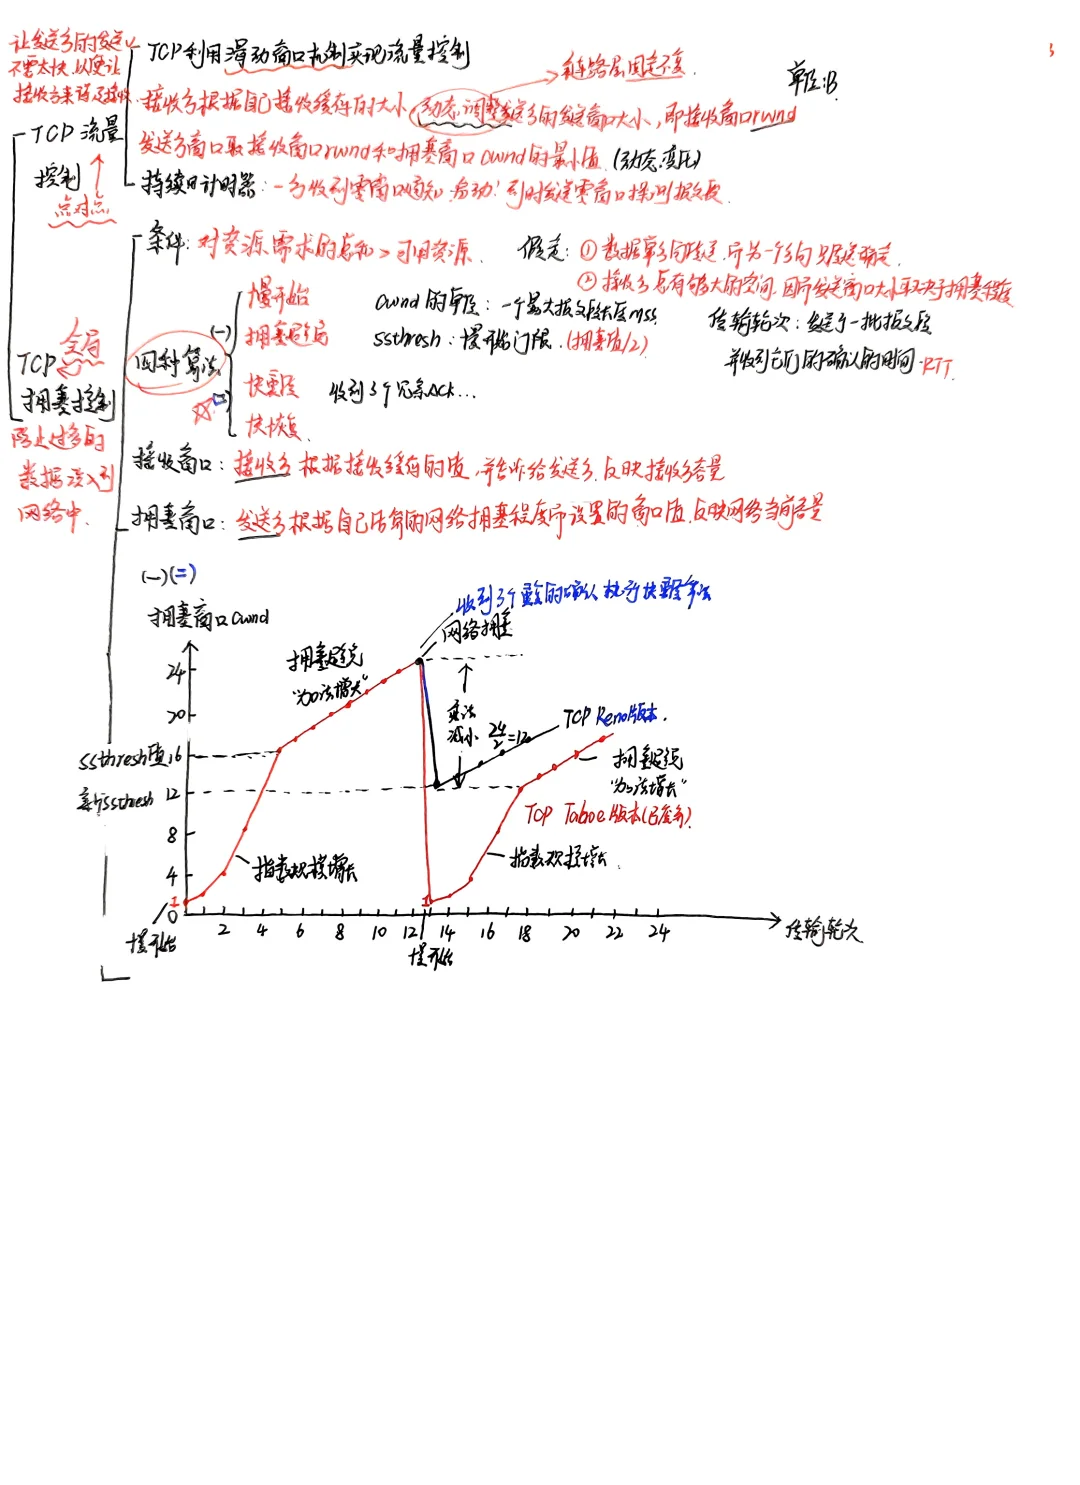 让发送方的发送
不要太快,以便让
接收方来得及接收
TCP利用滑动窗口机制实现流量控制
链路层固定不变
单位:B
接收方根据自己接收缓存的大小,动态调整发送方的发送窗口大小,即接收窗口rwnd
TCP流量
控制
点对点
发送方窗口取接收窗口rwnd和拥塞窗口cwnd的最小值.(动态变化)
持续计时器:一方收到零窗口通知,启动!到时发送零窗口探测报文段.
条件:对资源需求的总和>可用资源.
假定:①数据单方向发送,另一个方向只发送确定.
②接收方总有够大的空间.因而发送窗口大小取决于拥塞程度
四种算法
(一)
慢开始
拥塞避免
(二)
快重传
快恢复.
cwnd的单位:一个最大报文段长度mss.
ssthresh:慢开始门限.(拥塞值/2)
收到3个冗余ACK...
传输轮次:发送了一批报文段
并收到它们的确认的时间.RTT.
全局
TCP
拥塞控制
防止过多的
数据注入到
网络中.
接收窗口:接收方根据接收缓存的值,并告诉给发送方.反映接收方容量
拥塞窗口:发送方根据自己估算的网络拥塞程度而设置的窗口值.反映网络当前容量
(一)(二)
拥塞窗口cwnd
收到3个重复的确认执行快重传算法
网络拥塞
拥塞避免
"加法增大"
24
20
ssthresh值16
新ssthresh 12
8
4
1
0
乘法
减小
24/2=12
TCP Reno版本.
拥塞避免
"加法增长"
TCP Tahoe版本(已废弃)
指数规模增长
指数规模增长.
1
2 4 6 8 10 12 14 16 18 20 22 24
传输轮次
慢开始
慢开始